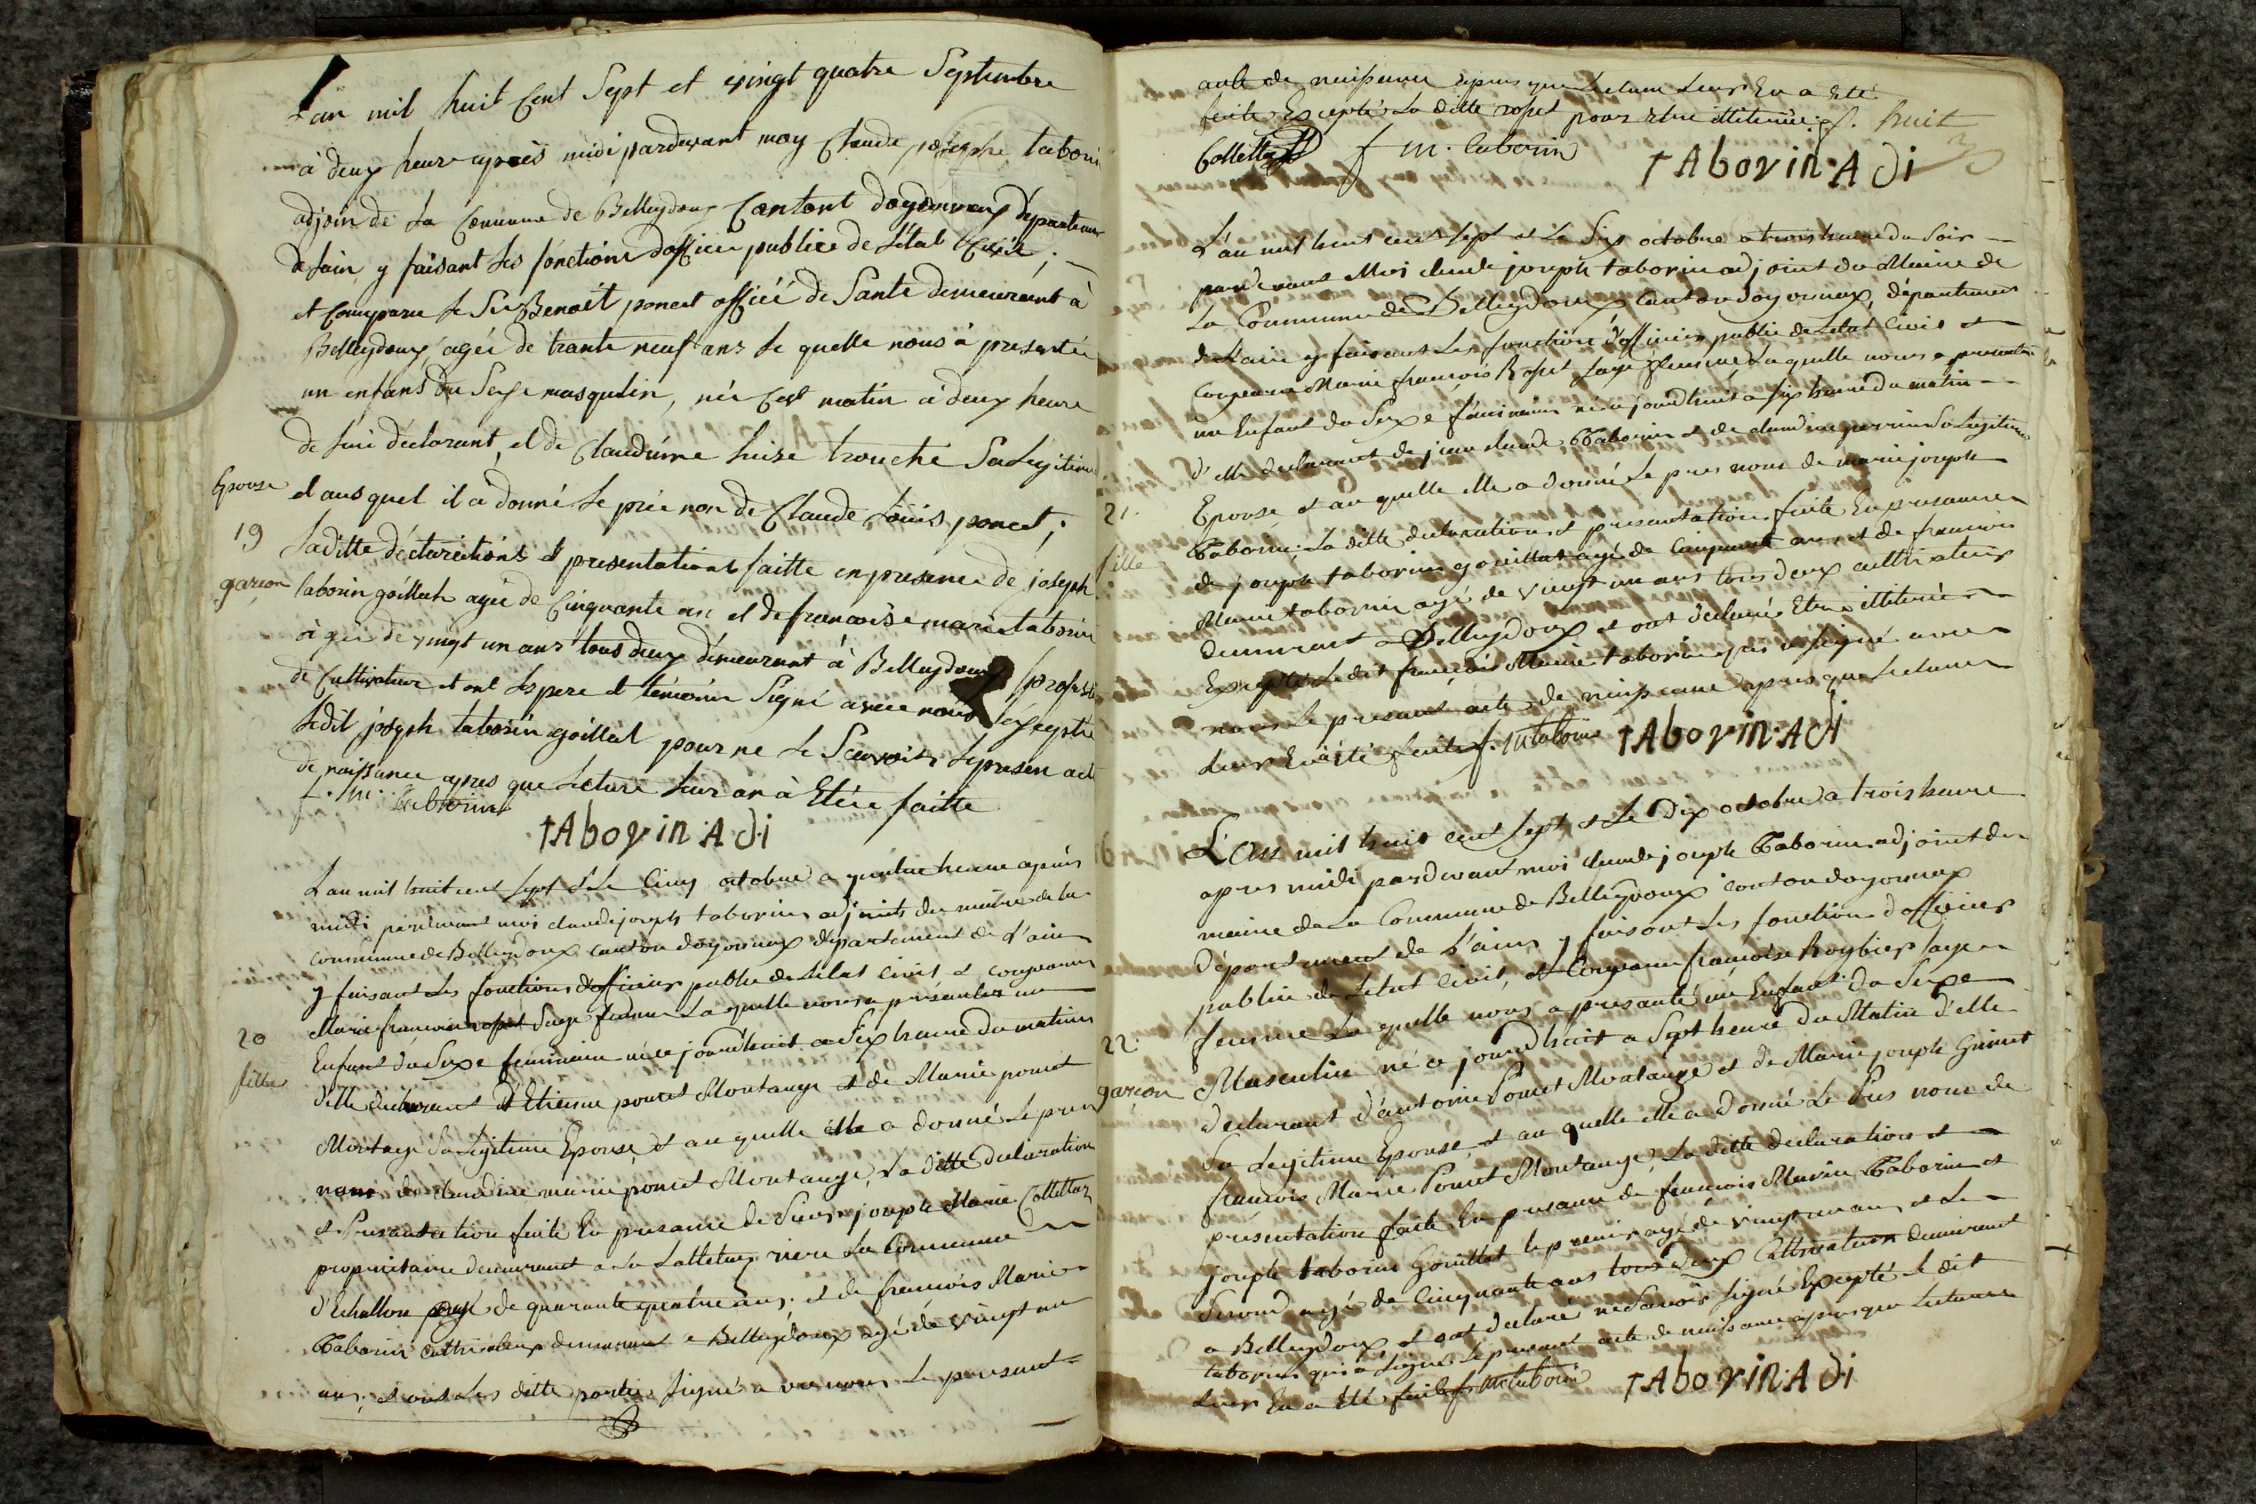 L'an mil huit Cent Sept et vingt quatre Septembre
à deux heure après midi pardevant moy Claude joseph tabori
adjoin de La Commune de Belleydoux Cantont doyonnax départemen
de Lain y faisant Les fonctions dofficier publice de L'état Civil,
et Comparu Le Sr Benoit poncet officié de Santé demeurant à
Belleydoux agée de trante neuf ans Le quelle nous à presentée
un enfans du Sexe masqulin, née Cest matin à deux heure
de lui déclarant, et de Claudinne Luise trouche Sa Legitime
Epouse et ausquel il a donné Le prée non de Claude Loüis poncet;
19
garçon
Laditte déclarations et presentations faitte en presence de joseph
taborin goillat agée de Cinquante ans et de francoise marie taborin
àgée de vingt un ans tous deux démeurant à Belleydoux profess
de Cultivateur et ont Les pere et témoin Signé avec nous Excepté
Ledit joseph taborin goillat pour ne Le Scavoir Le presen act
de naissance apres que Lecture Leur an à Etée faitte
f. m. taborin
tAborin Adi
L'an mil huit cent Sept et Le Cinq octobre a quatre heure après
midi pardevant moi claude joseph taborin adjoint du maire de la
commune de Belleydoux canton doyonnax département de L'ain
y faisant Les fonctions d'officier public de L'etat Civil et comparue
Marie francoise rosset Sage femme La quelle nous a présentée un
20
fille
Enfant du Sexe feminin née ce jourdhuit a Six heure du matin
d'elle declarant d'Etienne poncet Montange et de Marie poncet
Montange Sa Legitime Epouse, et au quelle elle a donné Le pres
nom de claudine marie poncet Montange, La ditte declaration
et Presentation faite En presance de Sieur joseph Marie Collettaz
propriétaire demeurant a La Lalleta riere La Commune
d'Echallon agé de quarante quatre ans; et de francois Marie
Taborin cultivateur demeurant a Belleydoux agé de vingt un
ans; et ont Les ditte parties Signés avec nous Le present
acte de naissance apres que Lecture Leur En a Eté
faite Excepté La ditte rosset pour Etre illiterée f. huit
Collettaz f m. taborin tAborin Adi
L'an mil huit cent Sept et Le Six octobre a trois heure du Soir
pardevant Moi claude joseph taborin adjoint du Maire de
La Commune de Belleydoux canton doyonnax, département
de L'ain y faisant Les fonction d'officier public de L'etat Civil et
Comparue Marie francois Rosset Sage femme, La quelle nous a presenté
un Enfant du Sexe féminin née ce jourdhuit a Six heure du matin
d'elle declarant de jean claude Taborin et de claudine perrin Sa Legitime
21.
fille
Epouse et au quelle elle a donné Le pres nom de marie joseph
Taborin; La ditte declaration et presentation faite En presance
de joseph taborin goillat agé de Cinquante ans et de francois
Marie taborin agé de vingt un ans tous deux cultivateur
demeurant a Belleydoux et ont déclaré Etre illiterée
Excepté Ledit françois Marie taborin qui a signé avec
nous Le presant acte de naissance apres que Lecture
Leur En à été faite f. m taborin tAborin Adi
L'an mil huit cent Sept et Le Dix octobre a trois heure
apres midi pardevant moi claude joseph Taborin adjoint du
maire de La Commune de Belleydoux canton doyonnax
Département de L'ain y faisant Les fonction d'officier
public de L'etat Civil, et Comparue francoise Roybier Sage
22.
garçon
femme La quelle nous a presanté un Enfant du Sexe
Masculin né ce jourdhuit a Sept heure du Matin d'elle
declarant d'antoine Poncet Montange et de Marie joseph Grinet
Sa Legitime Epouse, et au quelle elle a donné Le Pres nom de
françois Marie Poncet Montange, La ditte declaration et
presentation faite En presance de francois Marie Taborin et
joseph taborin Goillat le premier agé de vingt un ans et Le
Second agé de Cinquante ans tous deux Cultivateur demeurant
a Belleydoux, et ont declaré ne Savoir Signé Excepté Le dit
taborin qui a Signé Le present acte de naissance apres que Lecture
Leur En a Eté faite f. m taborin tAborin Adi